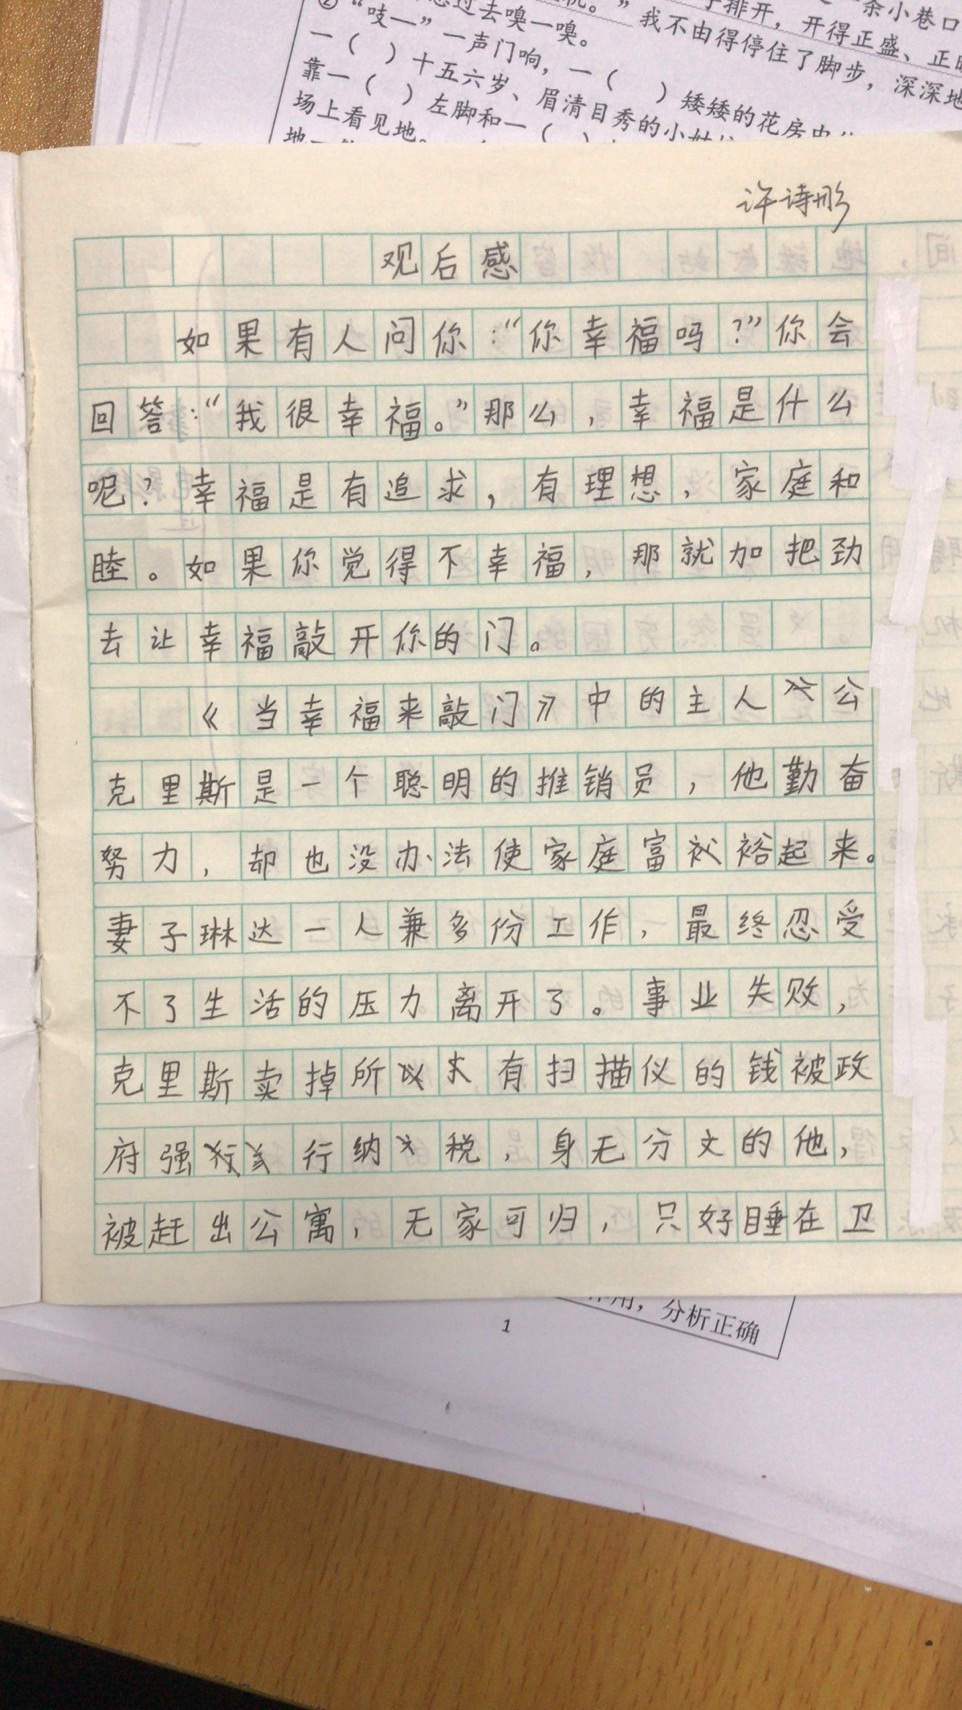 ②“吱一”一声门响，一（ ）矮矮的花房
去嗅一嗅。
我不由得停住了脚步，深深地
排开，开得正盛、正
条小巷口
一（ ）十五六岁、眉清目秀的小姑
靠一（ ）左脚和一（ ）
场上看见地。
许诗彤
观后感
如果有人问你：“你幸福吗？”你会
回答：“我很幸福。”那么，幸福是什么
呢？幸福是有追求，有理想，家庭和
睦。如果你觉得不幸福，那就加把劲
去让幸福敲开你的门。
《当幸福来敲门》中的主人公
克里斯是一个聪明的推销员，他勤奋
努力，却也没办法使家庭富裕起来。
妻子琳达一人兼多份工作，最终忍受
不了生活的压力离开了。事业失败，
克里斯卖掉所有扫描仪的钱被政
府强行纳税，身无分文的他，
被赶出公寓，无家可归，只好睡在卫
用，分析正确
1